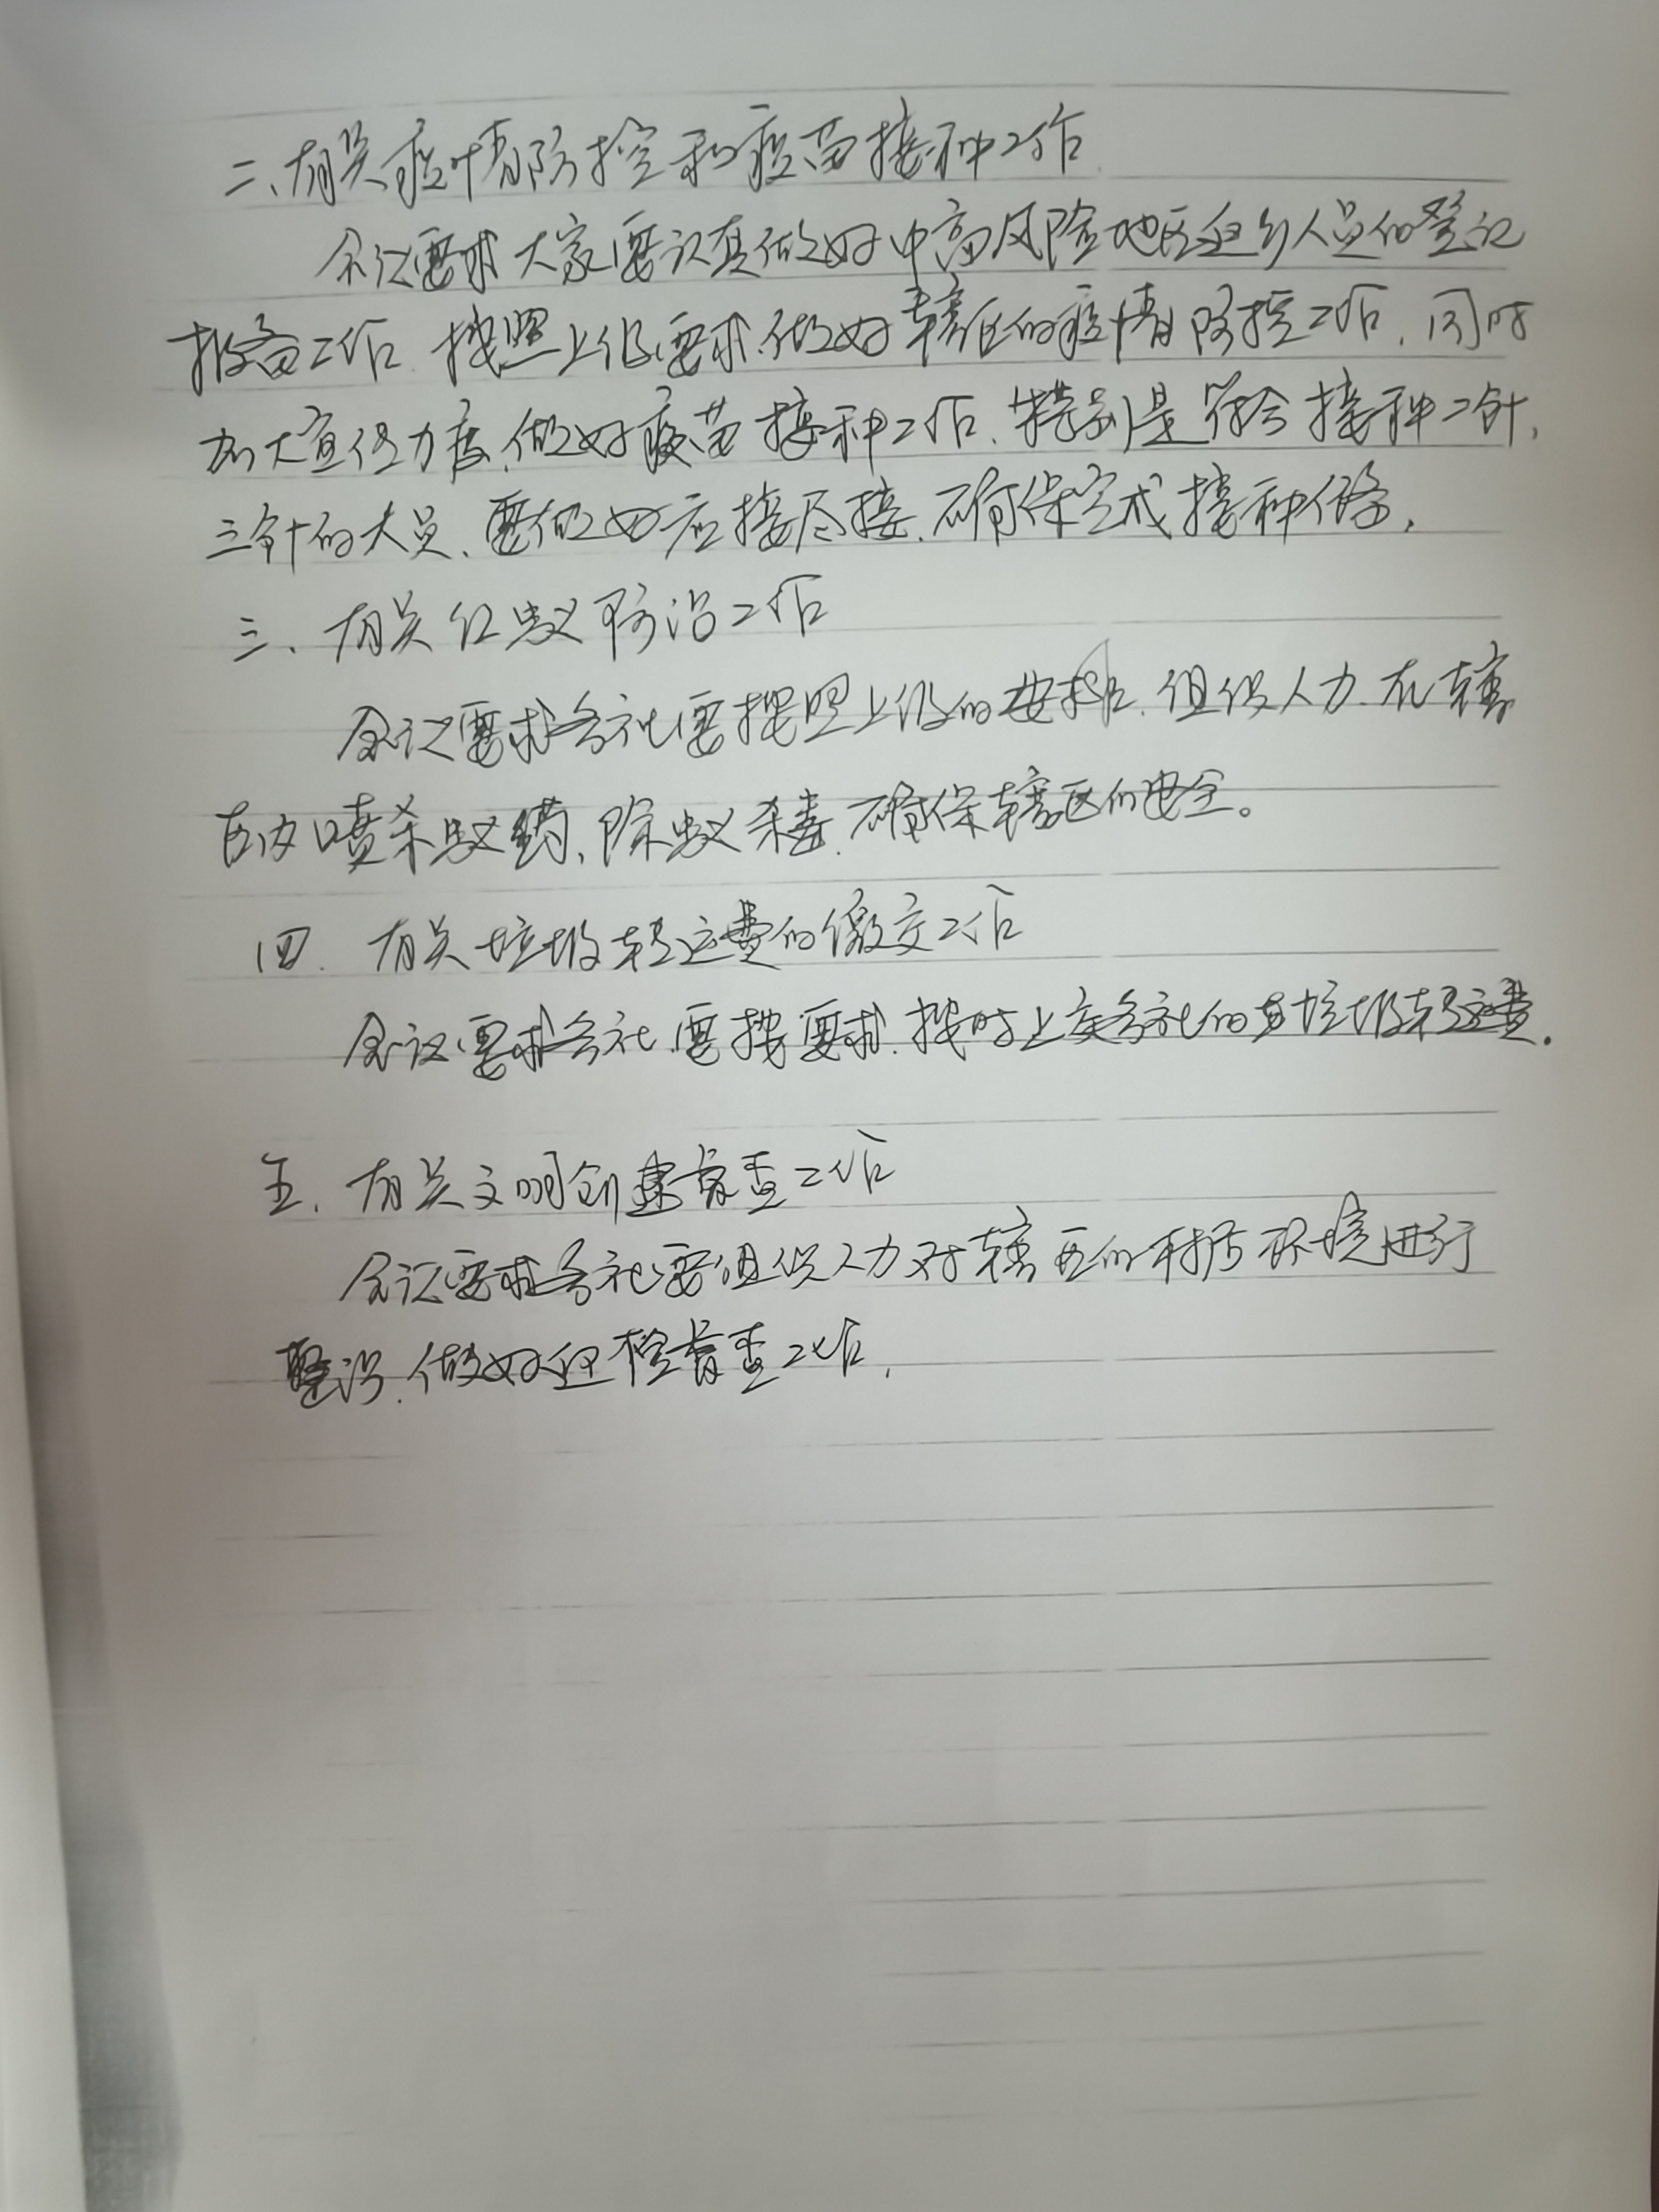 二、有关疫情防控和疫苗接种工作
会议要求大家要认真做好中高风险地区返乡人员的登记
报备工作.按照上级要求.做好辖区的疫情防控工作.同时
加大宣传力度.做好疫苗接种工作.特别是符合接种二针、
三针的人员、要做好应接尽接.确保完成接种任务.
三、有关红蚁防治工作
会议要求各社要按照上级的安排.组织人力.在辖
区内喷杀蚁药、除蚁杀毒.确保辖区的安全。
四.有关垃圾转运费的缴交工作
会议要求各社.要按要求.按时上交各社的垃圾转运费.
五.有关文明创建督查工作
会议要求各社要组织人力对辖区的环境进行
整治.做好迎检督查工作.